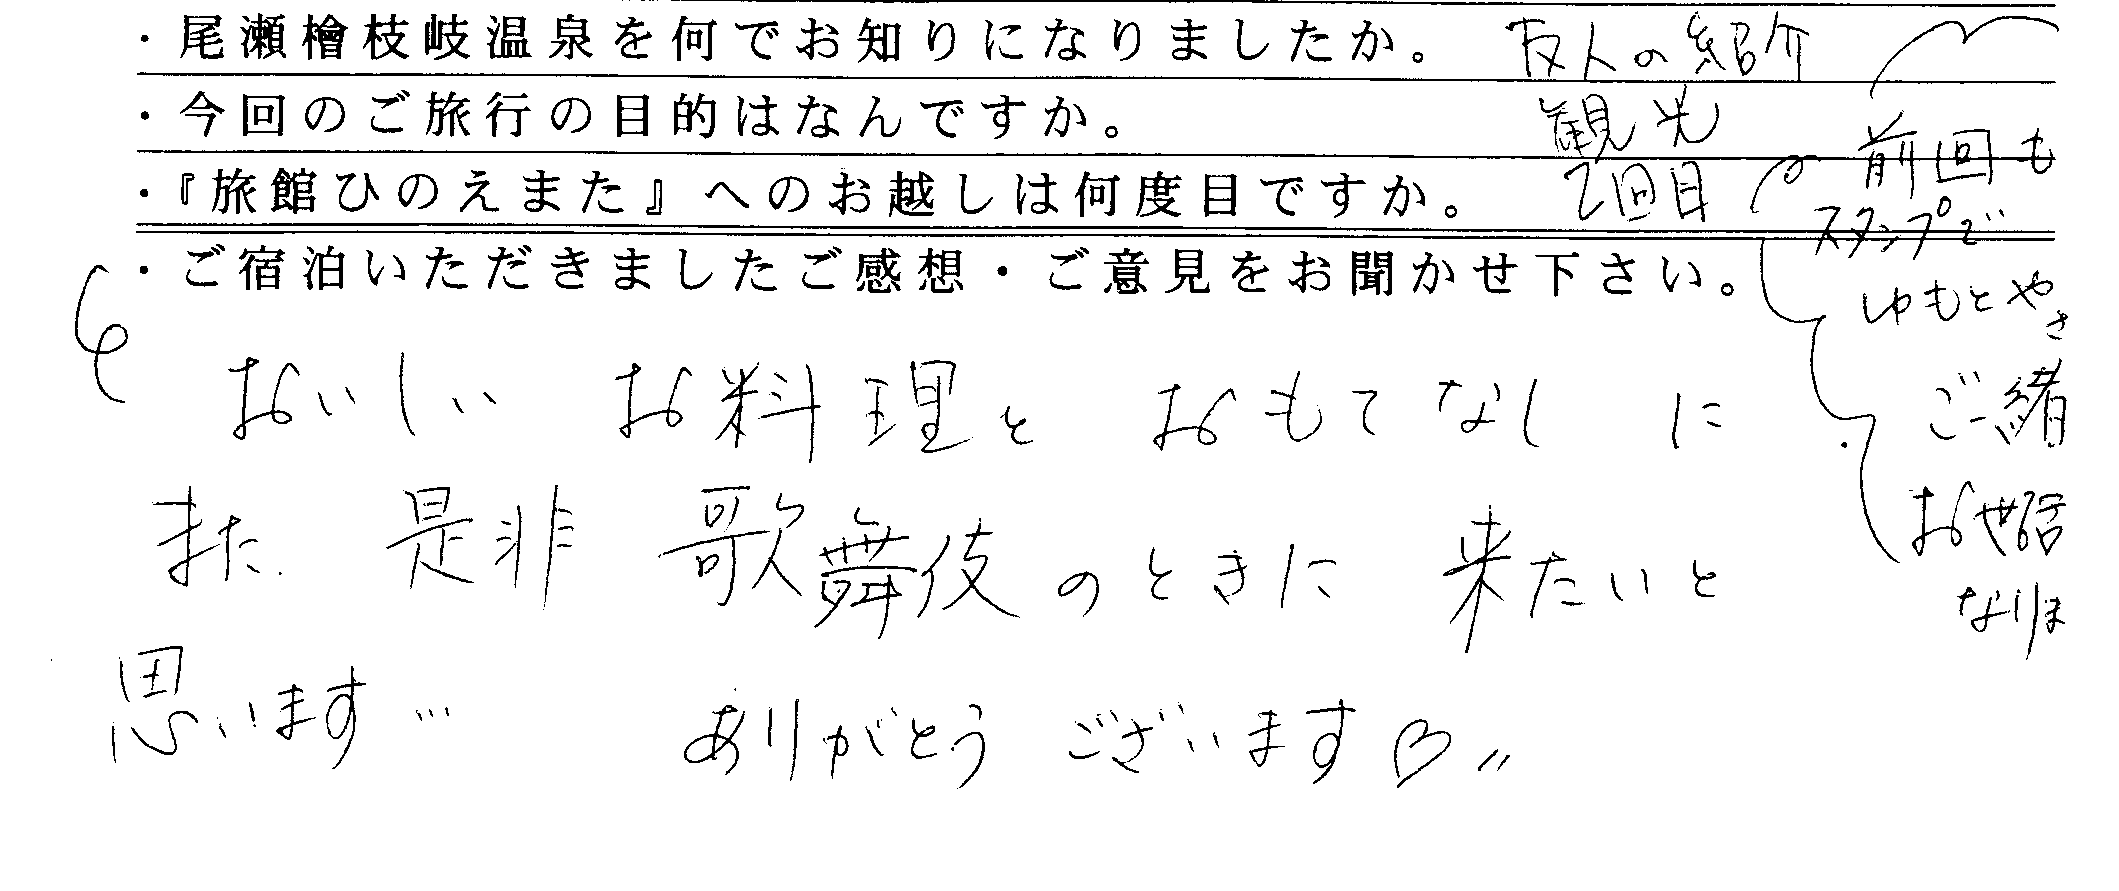 ・尾瀬檜枝岐温泉を何でお知りになりましたか。 友人の紹介
・今回のご旅行の目的はなんですか。 観光
・『旅館ひのえまた』へのお越しは何度目ですか。 2回目
前回も
スタンプで
ゆもとやさ
ご一緒
お世話
なりま
・ご宿泊いただきましたご感想・ご意見をお聞かせ下さい。
おいしい お料理と おもてなしに
また 是非 歌舞伎のときに 来たいと
思います… ありがとう ございます♡〃